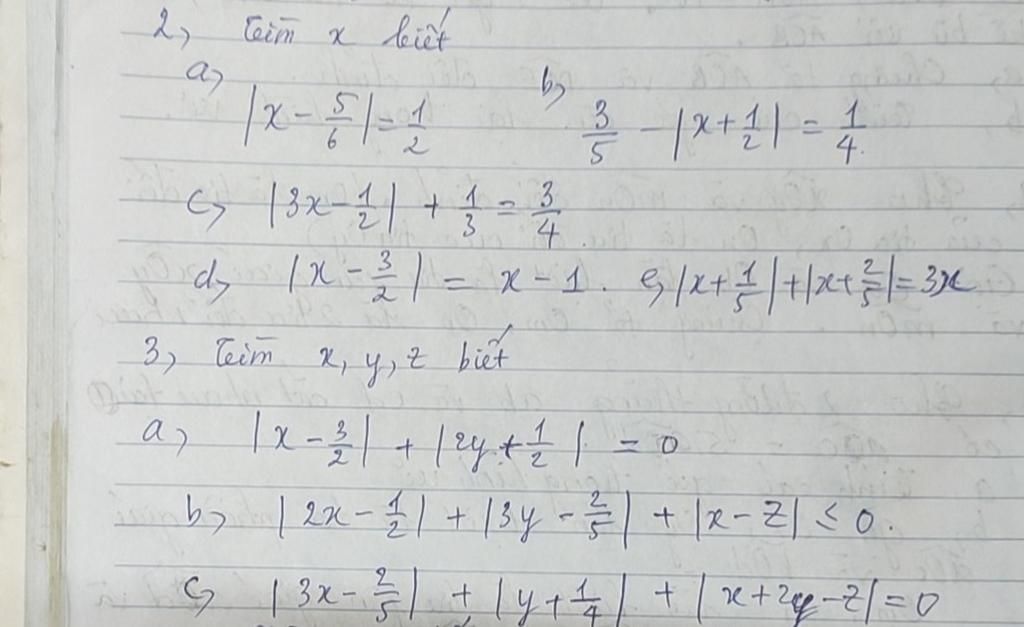 2, Tìm x biết
a, |x - 5/6| = 1/2 b, 3/5 - |x + 1/2| = 1/4.
c, |3x - 1/2| + 1/3 = 3/4
d, |x - 3/2| = x - 1. e, |x + 1/5| + |x + 2/5| = 3x
3, Tìm x, y, z biết
a, |x - 3/2| + |2y + 1/2| = 0
b, |2x - 1/2| + |3y - 2/5| + |x - z| ≤ 0.
c, |3x - 2/5| + |y + 1/4| + |x + 2y - z| = 0